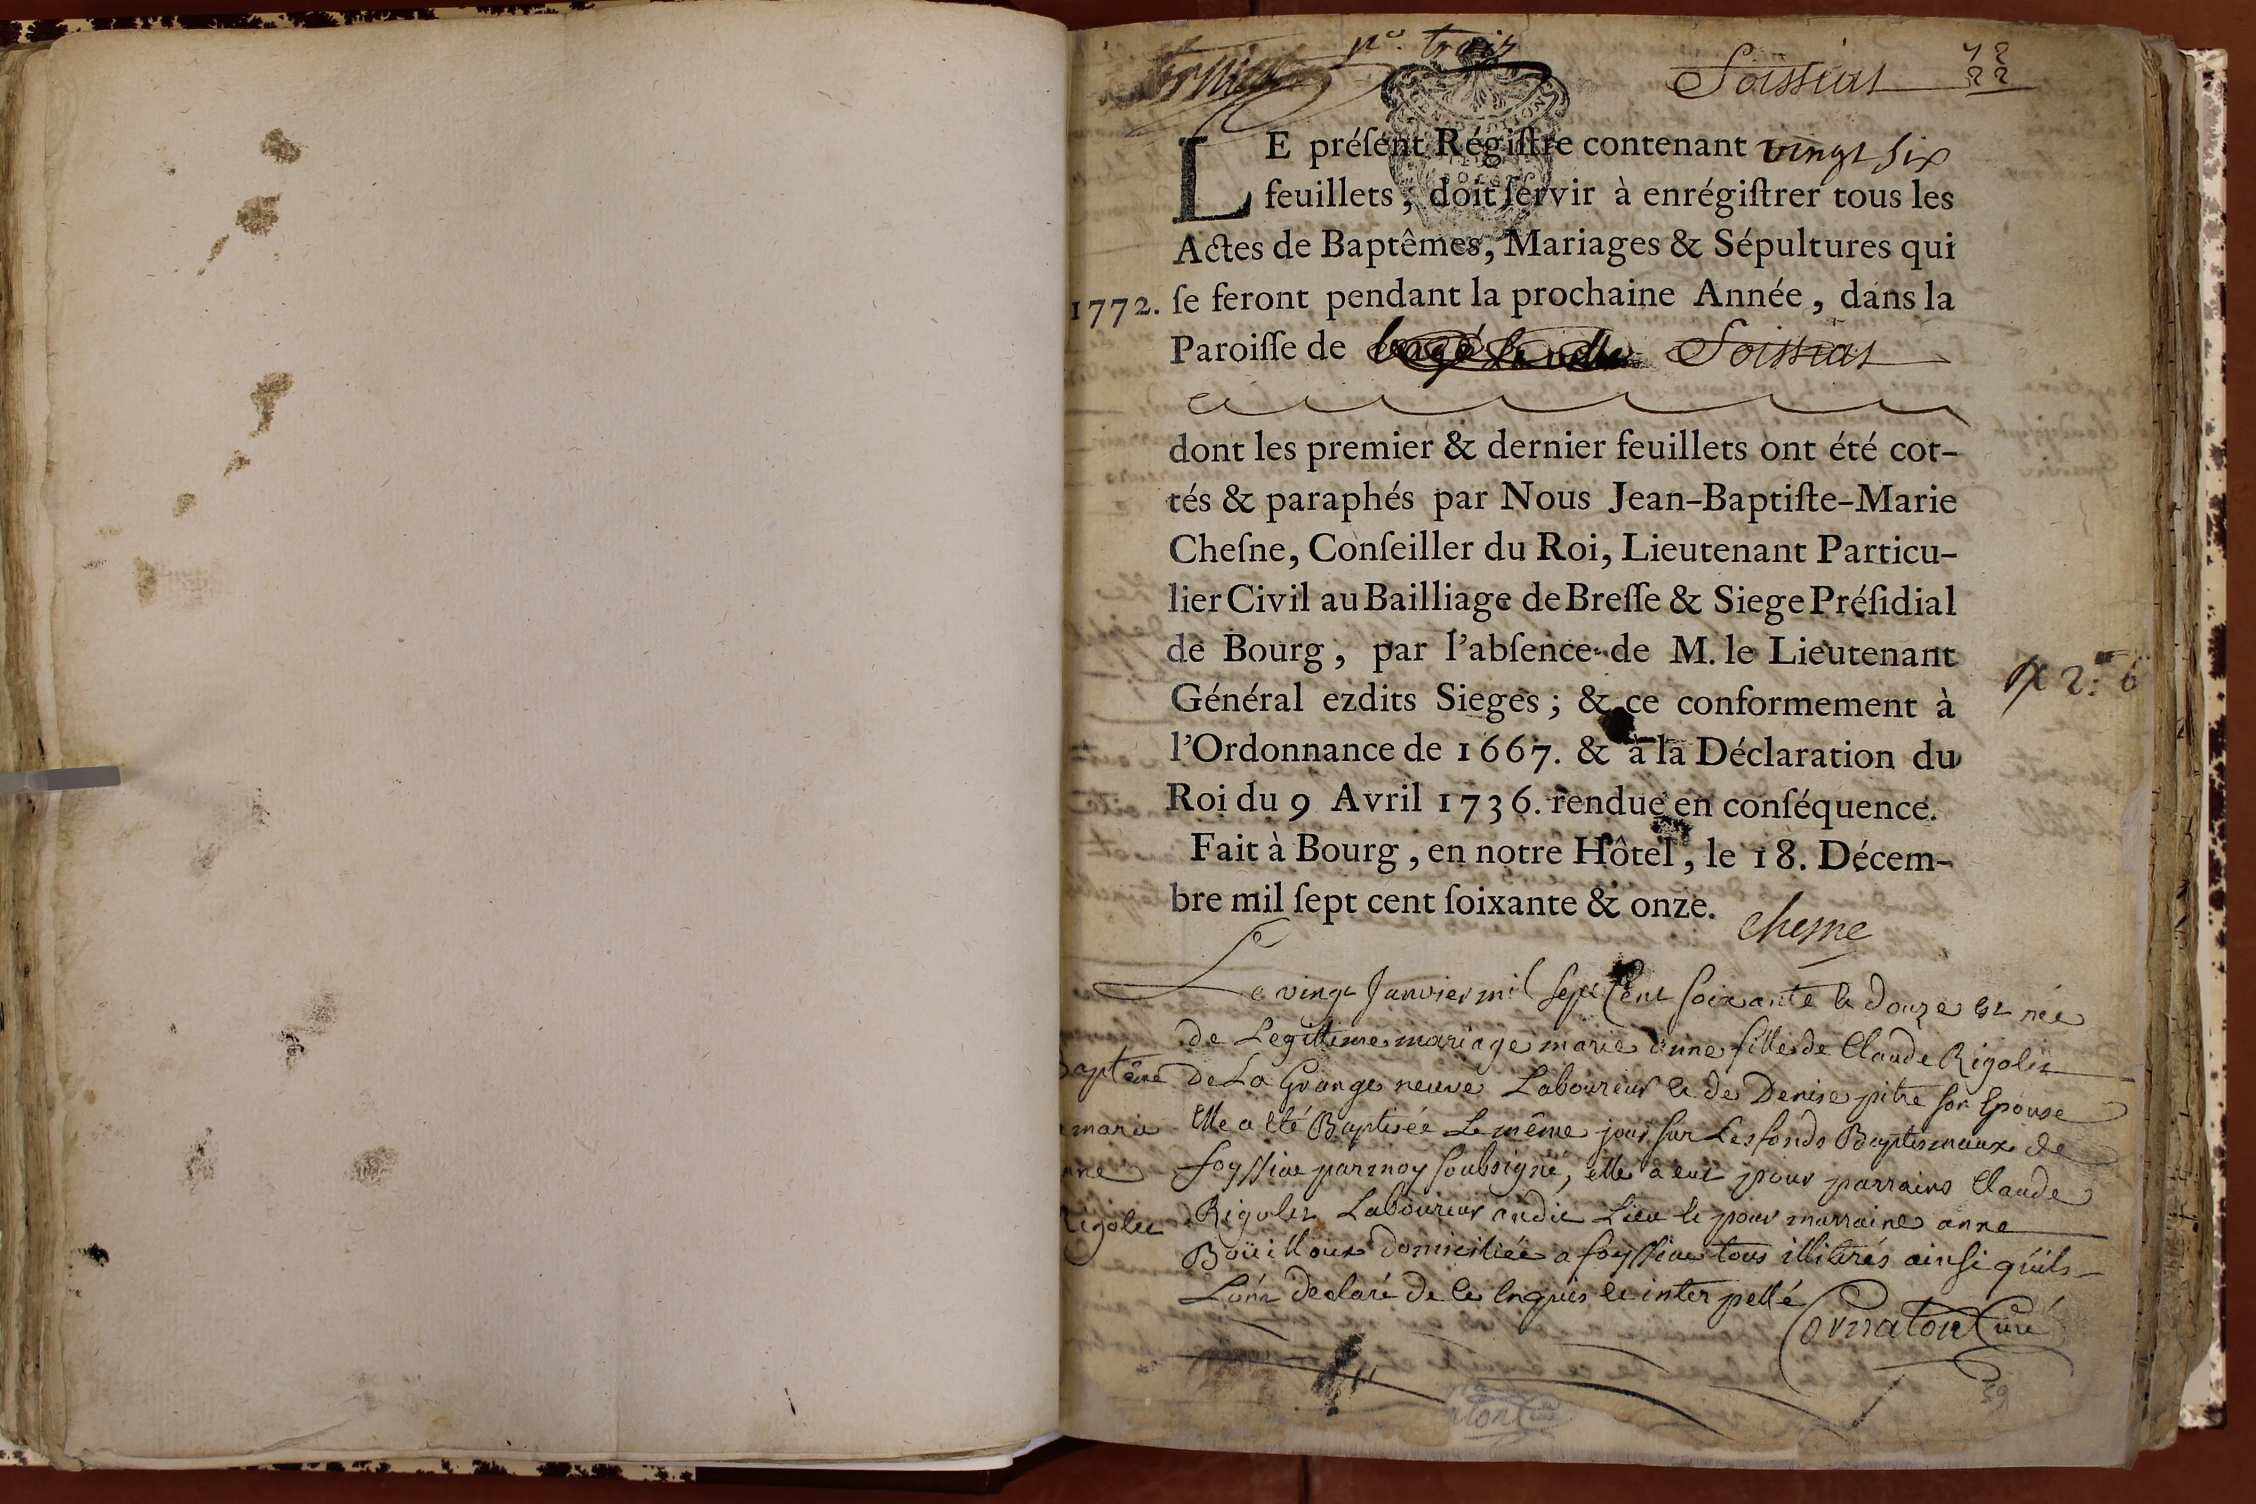 n.o trois
Soissiat
LE préſent Régiſtre contenant vingt six
feuillets, doit ſervir à enrégiſtrer tous les
Actes de Baptêmes, Mariages & Sépultures qui
1772. ſe feront pendant la prochaine Année, dans la
Paroiſſe de Soissiat
dont les premier & dernier feuillets ont été cot-
tés & paraphés par Nous Jean-Baptiſte-Marie
Cheſne, Conſeiller du Roi, Lieutenant Particu-
lier Civil au Bailliage de Breſſe & Siege Préſidial
de Bourg, par l'abſence de M. le Lieutenant
Général ezdits Sieges; & ce conformement à
l'Ordonnance de 1667. & à la Déclaration du
Roi du 9 Avril 1736. rendue en conſéquence.
Fait à Bourg, en notre Hôtel, le 18. Décem-
bre mil ſept cent ſoixante & onze.
chesne
Le vingt Janvier mil Sept Cent Soixante et douze est née
de Legitime mariage marie anne fille de Claude Rigolet
Baptême
De La Grange neuve Laboureur et de Denise pitre son Epouse
marie
Elle a été Baptisée Le même jour sur Les fonds Baptismaux de
anne
foyssiat par moy soubsigné, elle a eut pour parrains Claude
Rigolet
Rigolet Laboureur audit Lieu et pour marraine anne
Boüilloux domiciliée a foyssiat tous illiterés ainsi quils
L'ont declaré de ce enquis et interpellé
Cornaton Curé
39